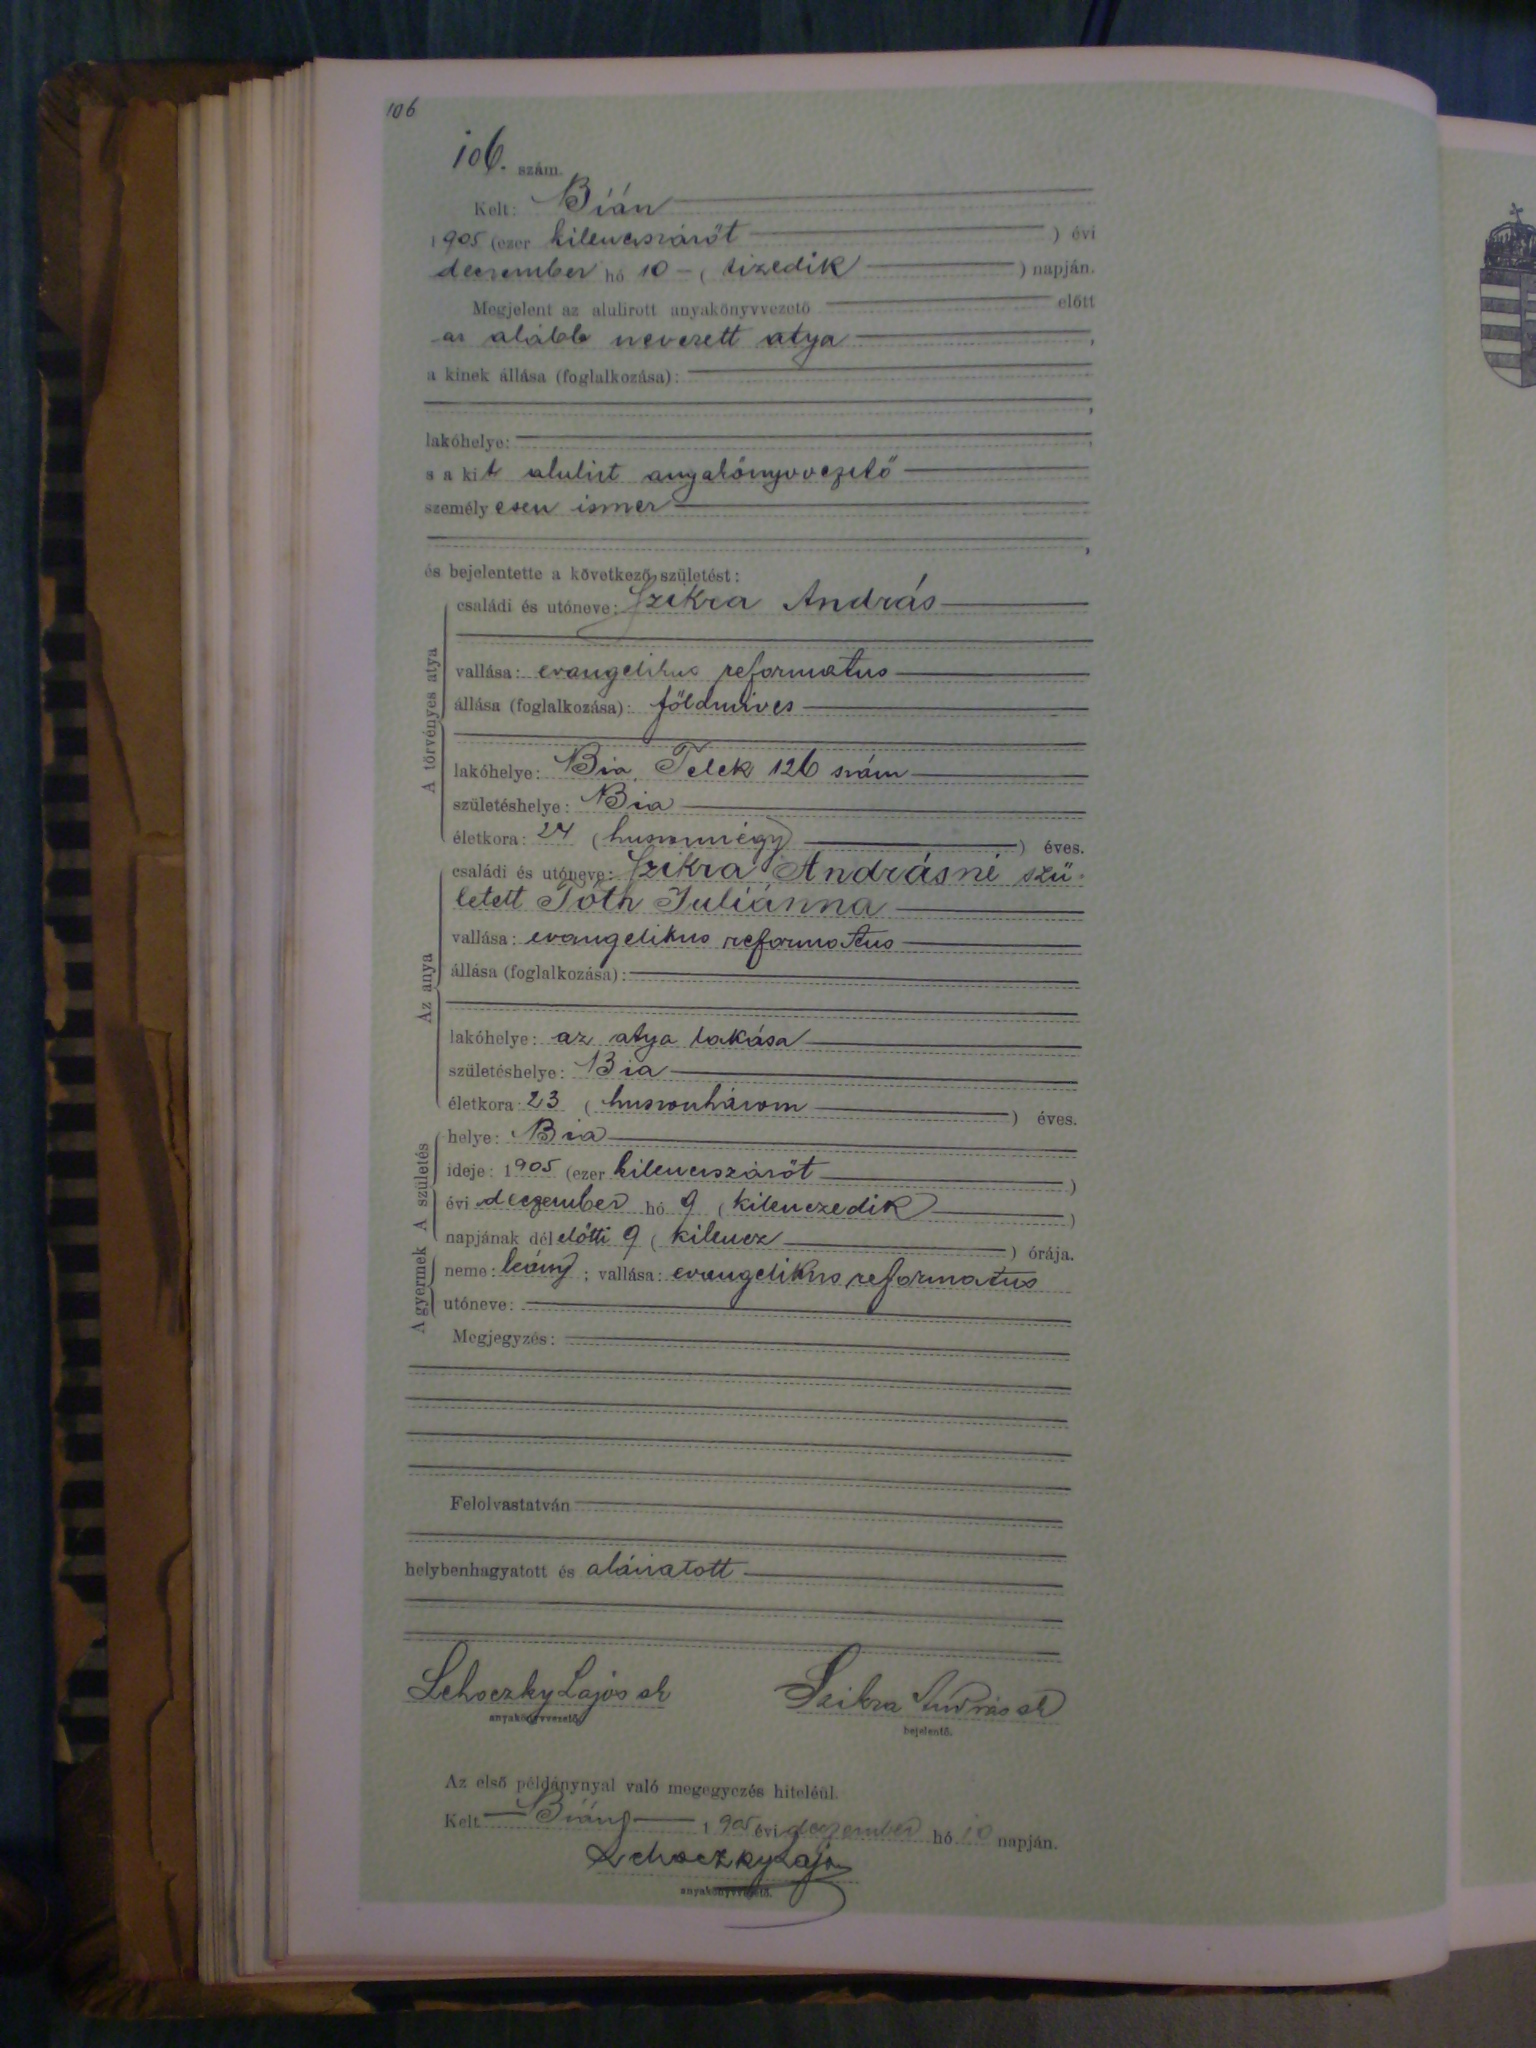 106
106. szám.
Kelt: Bián
1905 (ezer kilenczszázöt) évi
deczember hó 10 (tizedik) napján.
Megjelent az alulirott anyakönyvvezető előtt
az alább nevezett atya,
a kinek állása (foglalkozása):
,
lakóhelye: ,
s a kit alulirt anyakönyvvezető
személyesen ismer
,
és bejelentette a következő születést:
A törvényes atya
családi és utóneve: Szikra András
vallása: evangelikus reformatus
állása (foglalkozása): földmives
lakóhelye: Bia, Telek 126 szám
születéshelye: Bia
életkora: 24 (huszonnégy) éves.
Az anya
családi és utóneve: Szikra Andrásné szü-
letett Tóth Juliánna
vallása: evangelikus reformatus
állása (foglalkozása):
lakóhelye: az atya lakása
születéshelye: Bia
életkora: 23 (huszonhárom) éves.
A születés
helye: Bia
ideje: 1905 (ezer kilenczszázöt)
évi deczember hó 9 (kilenczedik)
napjának délelőtti 9 (kilencz) órája.
A gyermek
neme: leány; vallása: evangelikus reformatus
utóneve:
Megjegyzés:
Felolvastatván
helybenhagyatott és aláiratott
Lehoczky Lajos sk Szikra András sk
anyakönyvvezető. bejelentő.
Az első példánynyal való megegyezés hiteléül.
Kelt Bián 1905 évi deczember hó 10 napján.
Lehoczky Lajos
anyakönyvvezető.